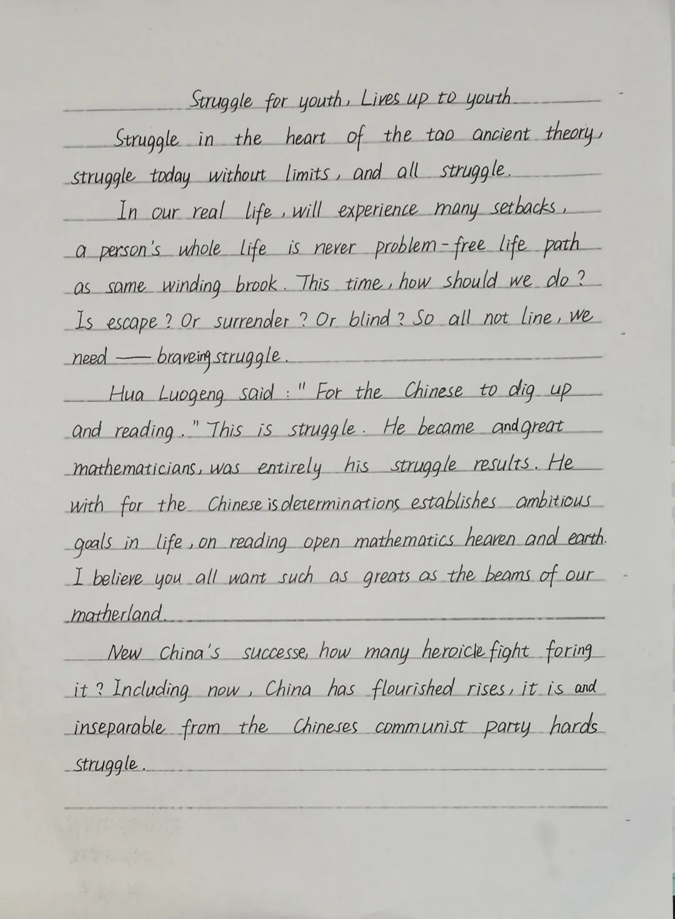 Struggle for youth, Lives up to youth
Struggle in the heart of the tao ancient theory,
struggle today without limits, and all struggle.
In our real life, will experience many setbacks,
a person's whole life is never problem-free life path
as same winding brook. This time, how should we do?
Is escape? Or surrender? Or blind? So all not line, we
need — braveing struggle.
Hua Luogeng said: "For the Chinese to dig up
and reading." This is struggle. He became and great
mathematicians, was entirely his struggle results. He
with for the Chinese is determinations, establishes ambitious
goals in life, on reading open mathematics heaven and earth.
I believe you all want such as greats as the beams of our
matherland.
New China's successe, how many heroicle fight foring
it? Including now, China has flourished rises, it is and
inseparable from the Chineses communist party hards
struggle.